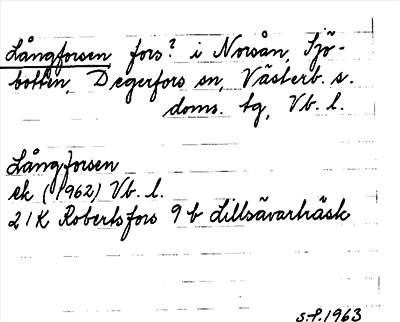 Långforsen fors? i Norsån, Sjö-
botten, Degerfors sn, Västerb. s.
doms. tg, Vb. l.
Långforsen
ek (1962) Vb. l.
21K Robertsfors 9 b Lillsävarträsk
S.P. 1963